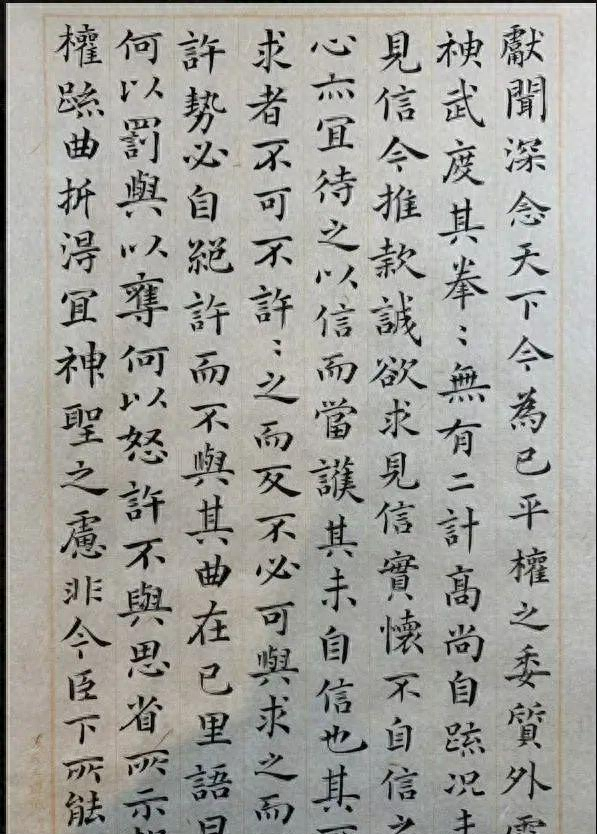 獻聞深念天下今為已平權之委質外震
神武度其拳〻無有二計高尚自疏况未
見信今推款誠欲求見信實懷不自信之
心亦宜待之以信而當護其未自信也其
求者不可不許〻之而反不必可與求之而
許勢必自絕許而不與其曲在己里語曰
何以罰與以奪何以怒許不與思省所示
權疏曲折得宜神聖之慮非今臣下所能